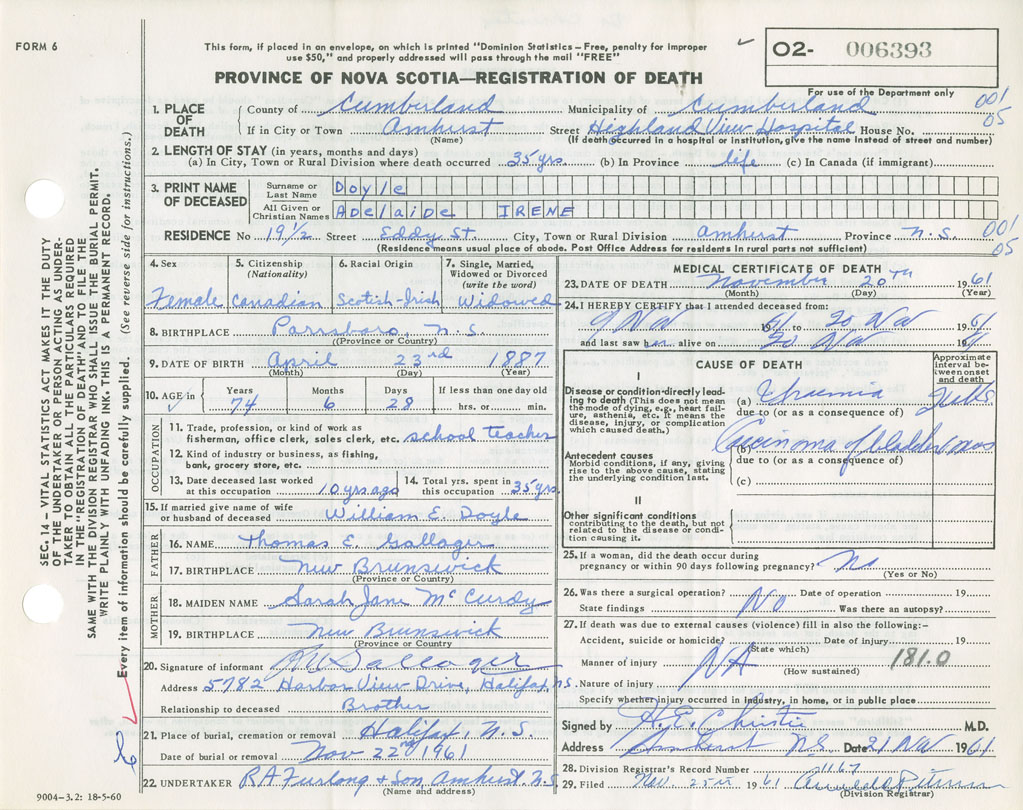 FORM 6
This form, if placed in an envelope, on which is printed "Dominion Statistics – Free, penalty for improper
use $50," and properly addressed will pass through the mail "FREE"
O2- 006393
PROVINCE OF NOVA SCOTIA—REGISTRATION OF DEATH
For use of the Department only
1. PLACE OF DEATH
County of Cumberland Municipality of Cumberland 001
If in City or Town Amherst Street Highland View Hospital House No. 05
(Name) (If death occurred in a hospital or institution, give the name instead of street and number)
2. LENGTH OF STAY (in years, months and days)
(a) In City, Town or Rural Division where death occurred 35 yrs. (b) In Province life (c) In Canada (if immigrant)
3. PRINT NAME OF DECEASED
Surname or Last Name Doyle
All Given or Christian Names Adelaide IRENE
RESIDENCE No 19½ Street Eddy St. City, Town or Rural Division Amherst Province N.S. 001
05
(Residence means usual place of abode. Post Office Address for residents in rural parts not sufficient)
4. Sex 5. Citizenship (Nationality) 6. Racial Origin 7. Single, Married, Widowed or Divorced (write the word)
Female Canadian Scotish-Irish Widowed
8. BIRTHPLACE Parrsboro, N.S.
(Province or Country)
9. DATE OF BIRTH April 23rd 1887
(Month) (Day) (Year)
10. AGE in Years Months Days If less than one day old
74 6 28 hrs. or min.
OCCUPATION
11. Trade, profession, or kind of work as
fisherman, office clerk, sales clerk, etc. school teacher
12. Kind of industry or business, as fishing,
bank, grocery store, etc.
13. Date deceased last worked at this occupation 10 yrs ago 14. Total yrs. spent in this occupation 35 yrs
15. If married give name of wife
or husband of deceased William E. Doyle
FATHER
16. NAME Thomas E. Gallager
17. BIRTHPLACE New Brunswick
(Province or Country)
MOTHER
18. MAIDEN NAME Sarah Jane McCurdy
19. BIRTHPLACE New Brunswick
(Province or Country
20. Signature of informant Gallager
Address 5782 Harbor View Drive, Halifax, N.S.
Relationship to deceased Brother
21. Place of burial, cremation or removal Halifax, N.S.
Date of burial or removal Nov 22nd 1961
22. UNDERTAKER R A Furlong & Son, Amherst. N.S.
(Name and address)
9004–3.2: 18-5-60
MEDICAL CERTIFICATE OF DEATH
23. DATE OF DEATH November 20TH 1961
(Month) (Day) (Year)
24. I HEREBY CERTIFY that I attended deceased from:
9 Nov 1961 to 20 Nov 1961
and last saw her alive on 20 Nov 1961
CAUSE OF DEATH
Approximate interval between onset and death
I
Disease or condition directly leading to death (This does not mean the mode of dying, e.g., heart failure, asthenia, etc. It means the disease, injury, or complication which caused death.)
(a) Uraemia
due to (or as a consequence of)
Antecedent causes
Morbid conditions, if any, giving rise to the above cause, stating the underlying condition last.
(b) Carcinoma of bladder mos
due to (or as a consequence of)
(c)
II
Other significant conditions
contributing to the death, but not related to the disease or condition causing it.
25. If a woman, did the death occur during
pregnancy or within 90 days following pregnancy? No
(Yes or No)
26. Was there a surgical operation? No Date of operation 19
State findings Was there an autopsy?
27. If death was due to external causes (violence) fill in also the following:–
Accident, suicide or homicide? Date of injury 19
(State which)
Manner of injury NA 181.0
(How sustained)
Nature of injury
Specify whether injury occurred in industry, in home, or in public place
Signed by H. E. Christie M.D.
Address Amherst N.S. Date 21 Nov 1961
28. Division Registrar's Record Number 1167
29. Filed Nov. 25th 1961
(Division Registrar)
SEC. 14 – VITAL STATISTICS ACT MAKES IT THE DUTY
OF THE UNDERTAKER OR PERSON ACTING AS UNDER-
TAKER TO OBTAIN ALL THE PARTICULARS REQUIRED
IN THE "REGISTRATION OF DEATH" AND TO FILE THE
SAME WITH THE DIVISION REGISTRAR WHO SHALL ISSUE THE BURIAL PERMIT.
WRITE PLAINLY WITH UNFADING INK. THIS IS A PERMANENT RECORD.
Every item of information should be carefully supplied. (See reverse side for instructions.)